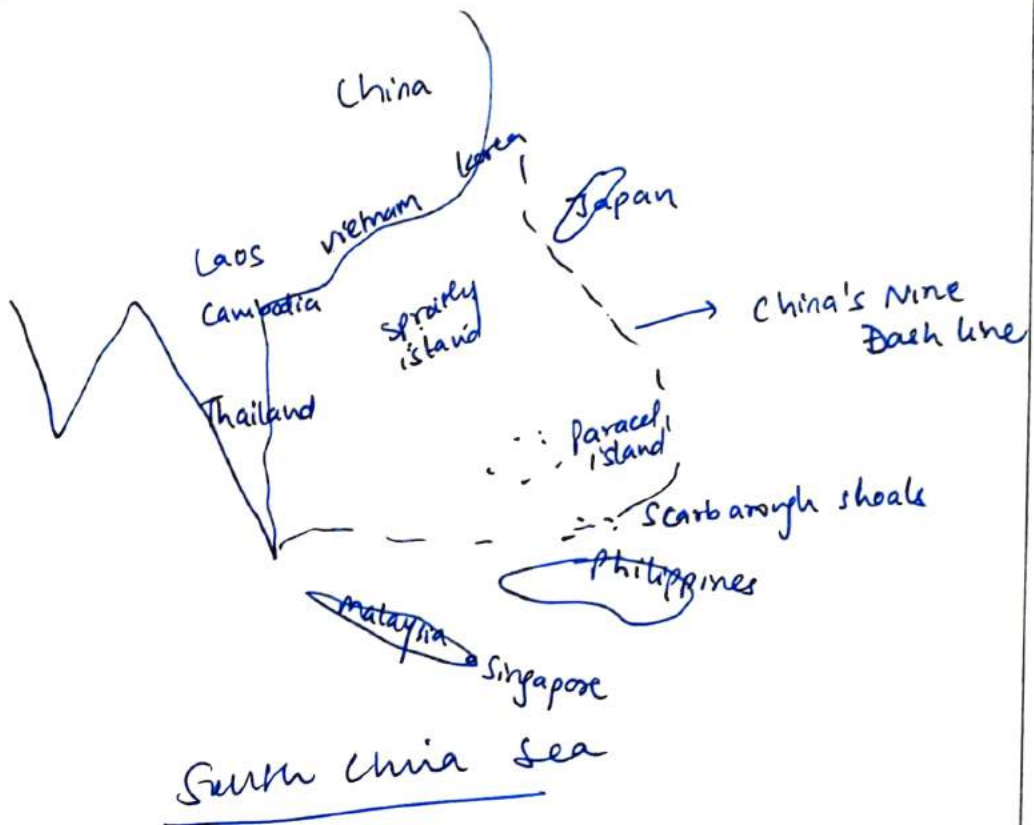 China
Korea
Japan
Vietnam
Laos
Cambodia
sprately
island
China's Nine
Dash line
Thailand
Paracel
island
Scarbarough shoals
Philippines
Malaysia
Singapore
South China Sea